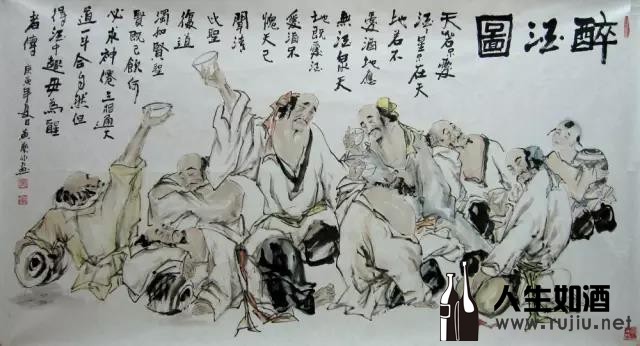 醉酒圖
天若不愛
酒星不在天
地若不
愛酒地應
無酒泉天
地既愛酒
愛酒不
愧天已
聞清
比聖
復道
濁如賢聖
賢既已飲何
必求神僊三杯通大
道一斗合自然但
得酒中趣毋為醒
者傳
人生如酒
www.rujiu.net